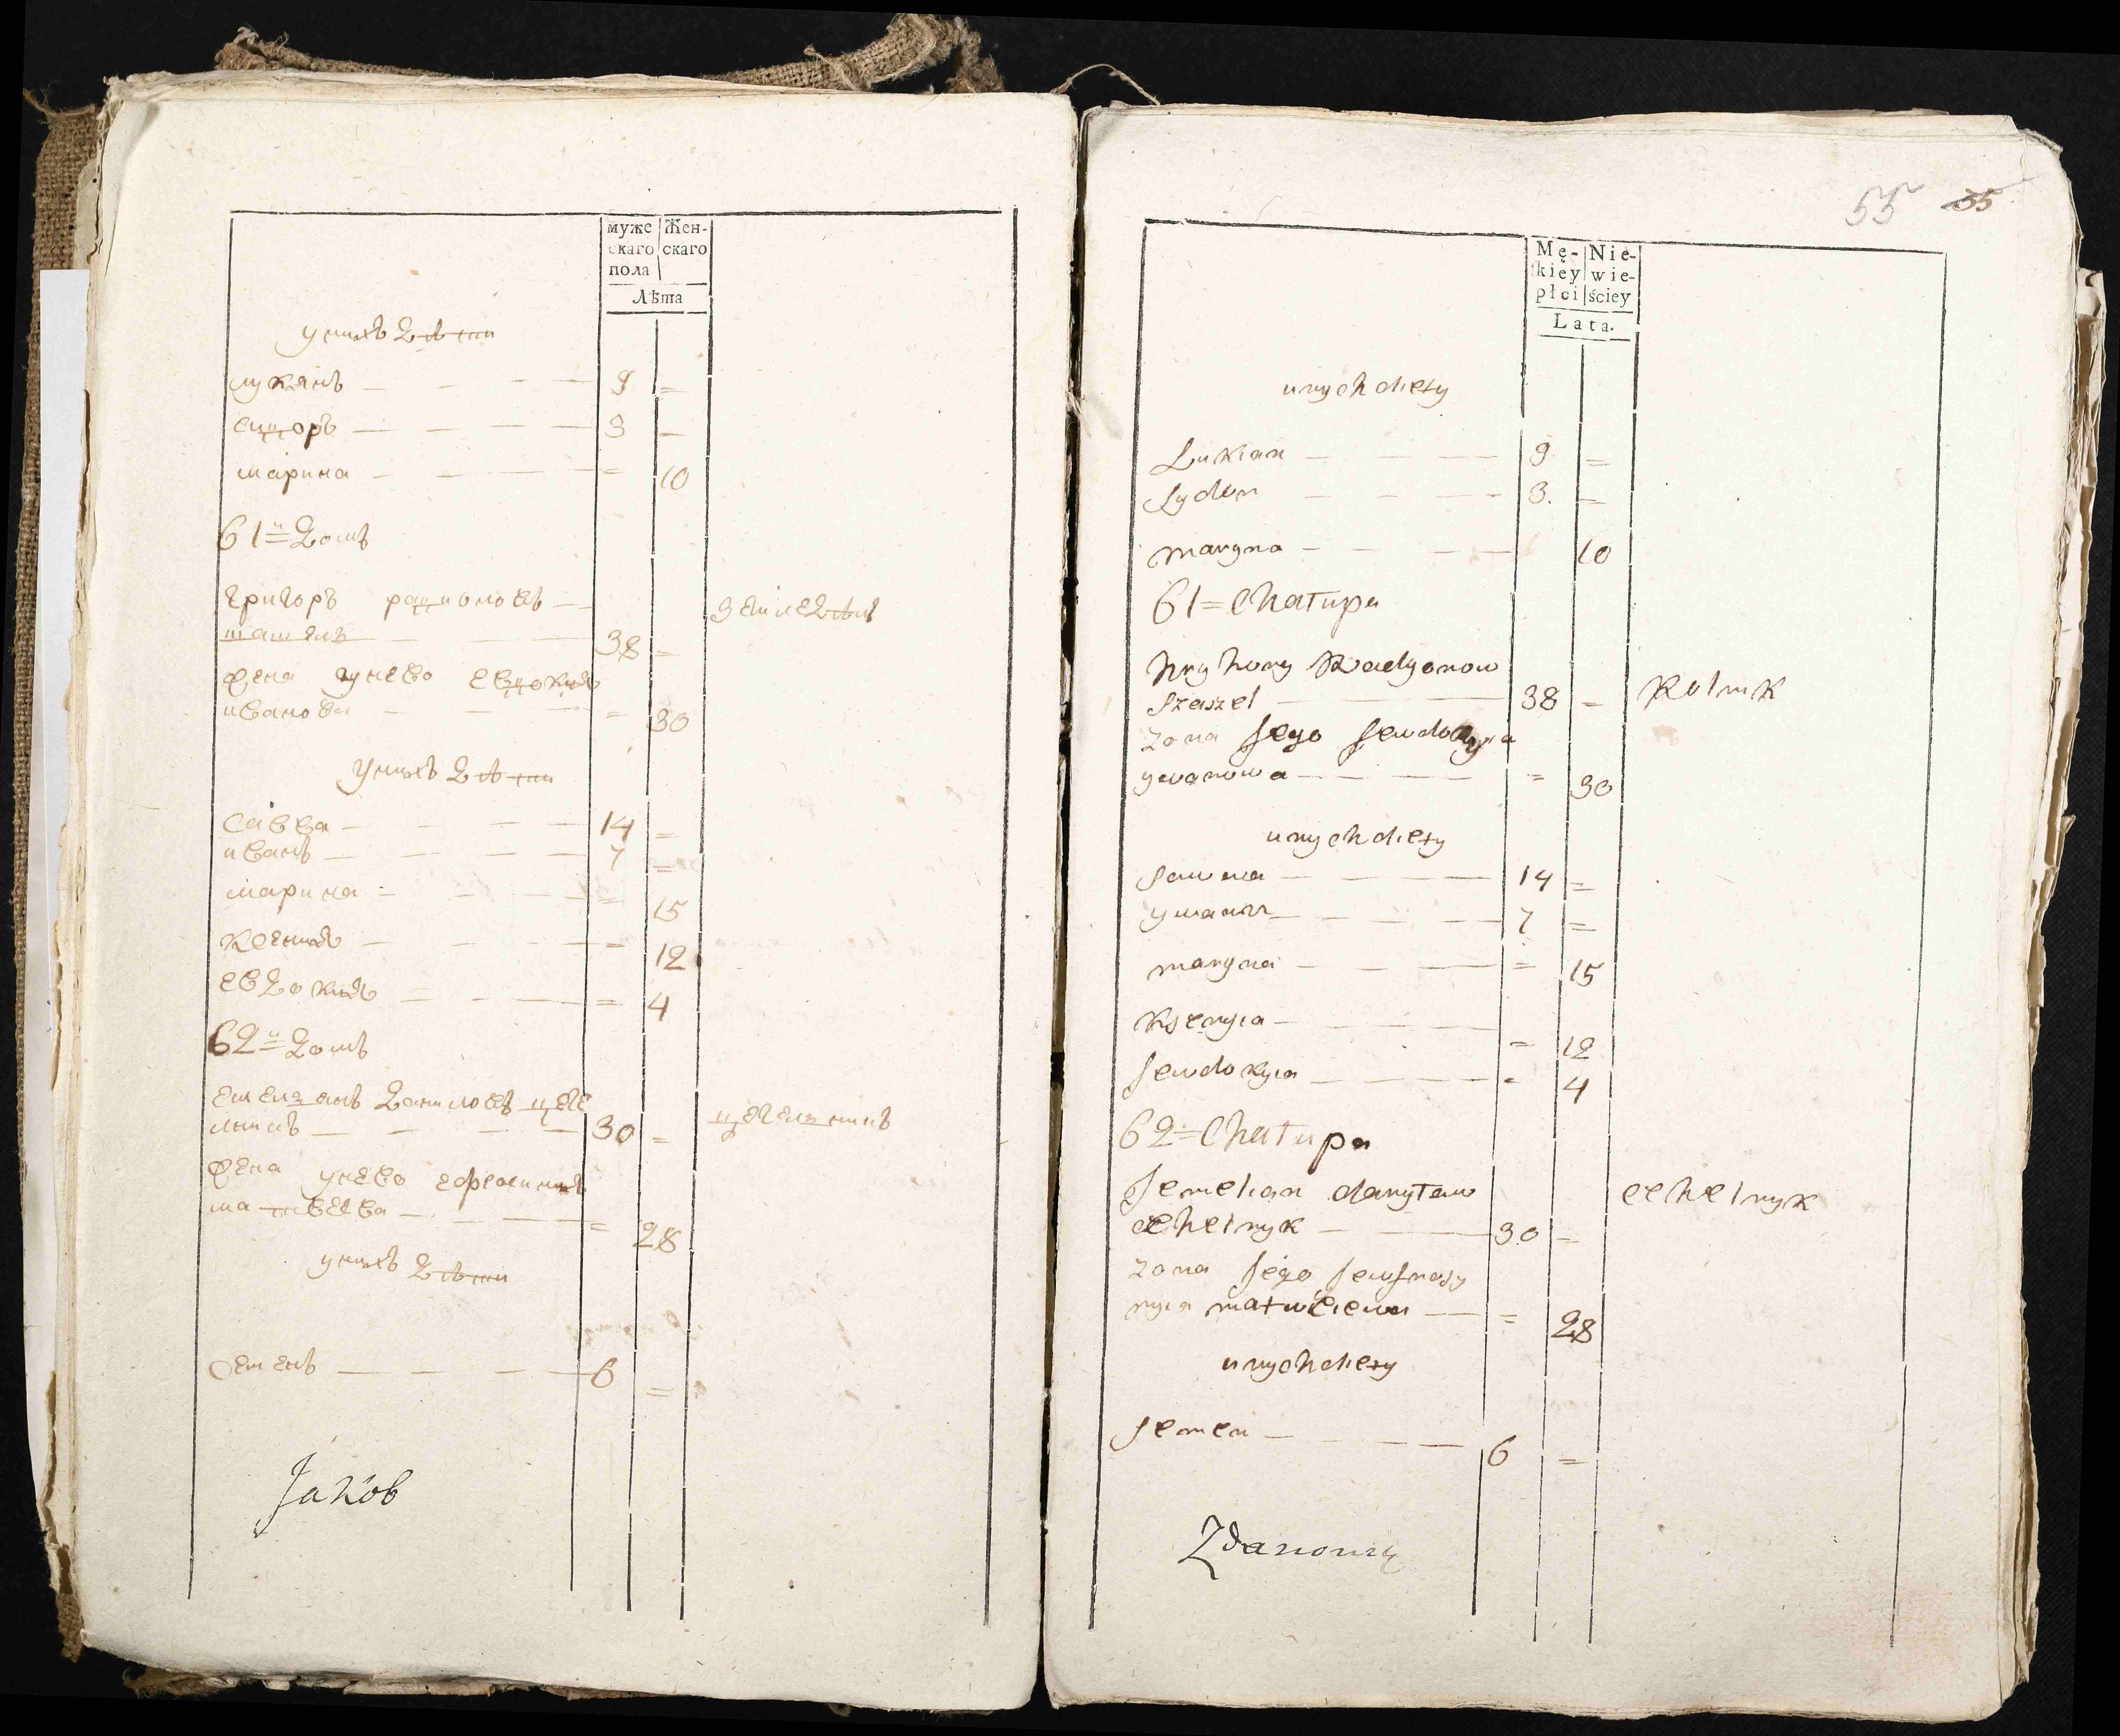 муже Жен-
скаго скаго
пола
Лѣта
унихъ дѣти
лукянъ — — — — 9 =
сидоръ — — — — 3 =
марина — — — = 10
61й= домъ
григоръ радионовъ — земледѣлъ
шашелъ — — 38 =
жена унево евдокия
иванова — — = 30
Унихъ дѣти
савва — — — — 14 =
иванъ — — — — 7 =
марина — — — = 15
ксения — — — = 12
евдокия — — — = 4
62й= домъ
емелянъ даниловъ цеге
лникъ — — — — 30 = цегелникъ
жена унево ефросиния
матвеева — — — = 28
унихъ дѣти
семенъ — — — — 6 =
Jakób
55 55
Mę- Nie-
skiey wie-
płci ściey
Lata.
unych diety
Lukian — — — 9 =
Sydor — — — 3. =
maryna — — — 10
61= Chałupa
Hryhory Radyonow
Szaszel — — 38 = Rolnik
zona Jego Jewdokyia
ywanowa — — — = 30
unych diety
sawwa — — — 14 =
ywann — — — 7 =
maryna — — — = 15
Ksenyia — — — = 12
Jewdokyia — — — = 4
62= Chałupa
Jemelian danyłow cehelnyk
cehelnyk — — 30 =
zona Jego Jewfrosy
nyia matwieiewa — = 28
unych diety
semen — — — 6 =
Zdanowicz